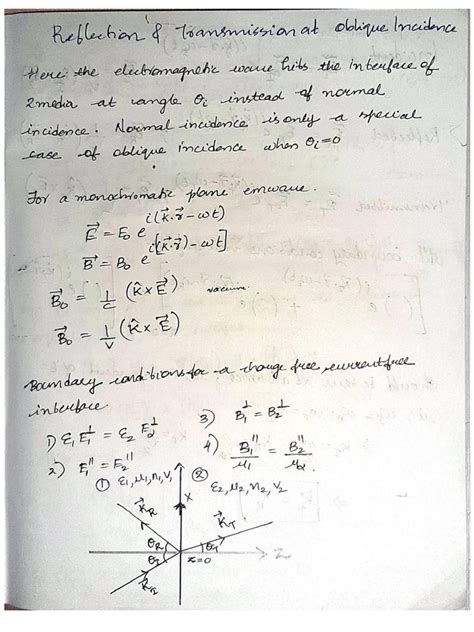 Reflection & Transmission at oblique Incidence
Here the electromagnetic wave hits the Interface of
2 media at angle θi instead of normal
incidence. Normal incidence is only a special
case of oblique incidence when θi=0
For a monochromatic plane emwave.
E⃗ = E₀ e^{i(k⃗·r⃗-ωt)}
B⃗ = B₀ e^{i[(k⃗·r⃗)-ωt]}
B⃗₀ = 1/c (k̂ x E⃗) vacuum
B⃗₀ = 1/v (k̂ x E⃗)
Boundary conditions for a charge free, current free
interface
1) ε₁E₁^⊥ = ε₂E₂^⊥ 3) B₁^⊥ = B₂^⊥
2) E₁^{||} = E₂^{||} 4) B₁^{||}/μ₁ = B₂^{||}/μ₂.
① ε₁, μ₁, n₁, v₁ ②
ε₂, μ₂, n₂, v₂
X
k⃗_R k⃗_T
θ_R θ_T Z
θ_I z=0